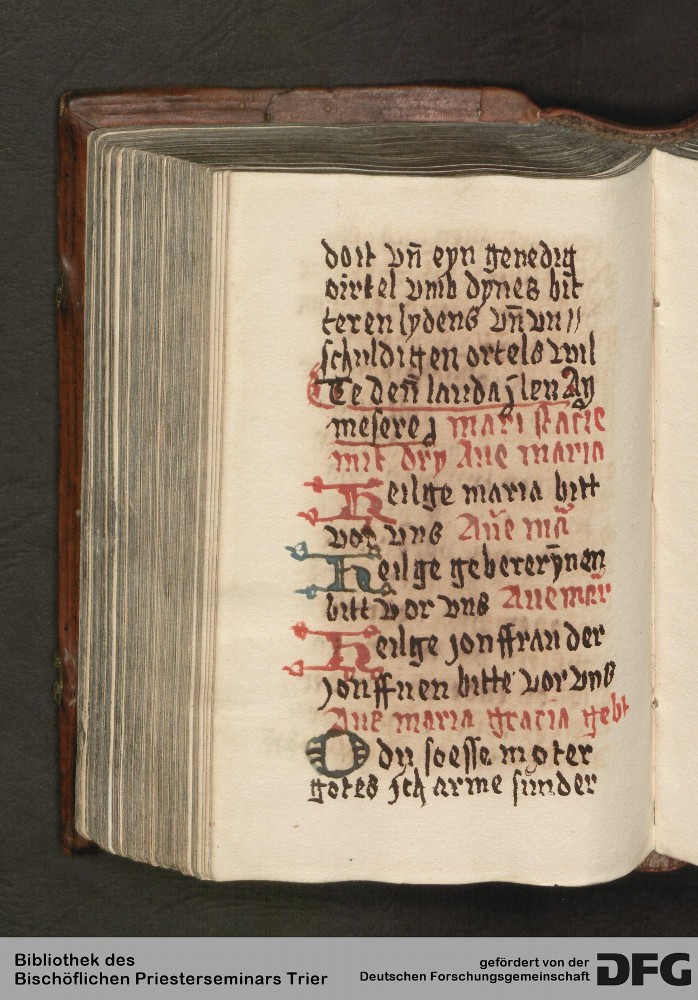 doit vn̄ eyn genedig
oirtel vmb dynes bit
teren lydens vn̄ vn//
schuldigen ortels wil
Te deū laudaȷ̄ len Ay
mesereȷ mari stacie
mit dry Aue maria
Heilge maria bitt
vor vns Aūe ma͞
Heilge gebererȳnen
bitt vor vns Aue mar͞
Heilge jonffrau der
jonffuen bitte vor vns
Aue maria gracia gebt
O du soesse moter
gotes jch arme sunder
Bibliothek des
Bischöflichen Priesterseminars Trier
gefördert von der
Deutschen Forschungsgemeinschaft DFG